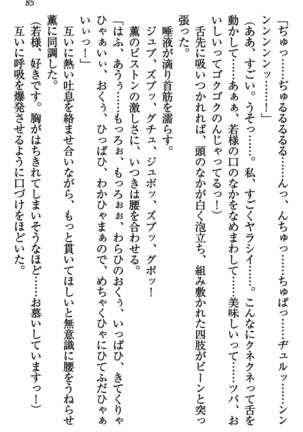 85
「ぢゅっ……ぢゅるるるるる……んっ、んちゅっ……ちゅぱっ……ヂュル……ンン
ンンンンッ……！」
（ああ、すごい。うそっ……。私、すごくヤラシイ……。こんなにクネクネって舌を
動かして……あぁぁ、若様の口のなかをなめまわして……美味しいって……ツバ、お
いしいってゴクゴクのんじゃってるっ……！）
舌先に吸いつかれれば、頭のなかが白く泡立ち、組み敷かれた四肢がビーンと突っ
張った。
唾液が滴り首筋を濡らす。
ジュブ、ズブッ、グチュ、ジュボッ、ズブッ、グボッ！
薫のピストンの激しさに、いつきは腰を合わせる。
「はふ、あうぅ……もっろぉ、もっろぉぉ、わらひのおく、いっぱひ、きてくりゃ
ひゃあぃぃ、おくぅ、ひっぱひ、わかひゃまぁので、めちゃくひゃにひてふだひゃぁ
いぃっ！」
互いに熱い吐息を絡ませ合いながら、もっと貫いてほしいと無意識に腰をうねらせ
薫に同調した。
（若様、好きです。胸がはちきれてしまいそうなほど……お慕いしていますっ！）
互いに呼吸を爆発させるように口づけをほどいた。